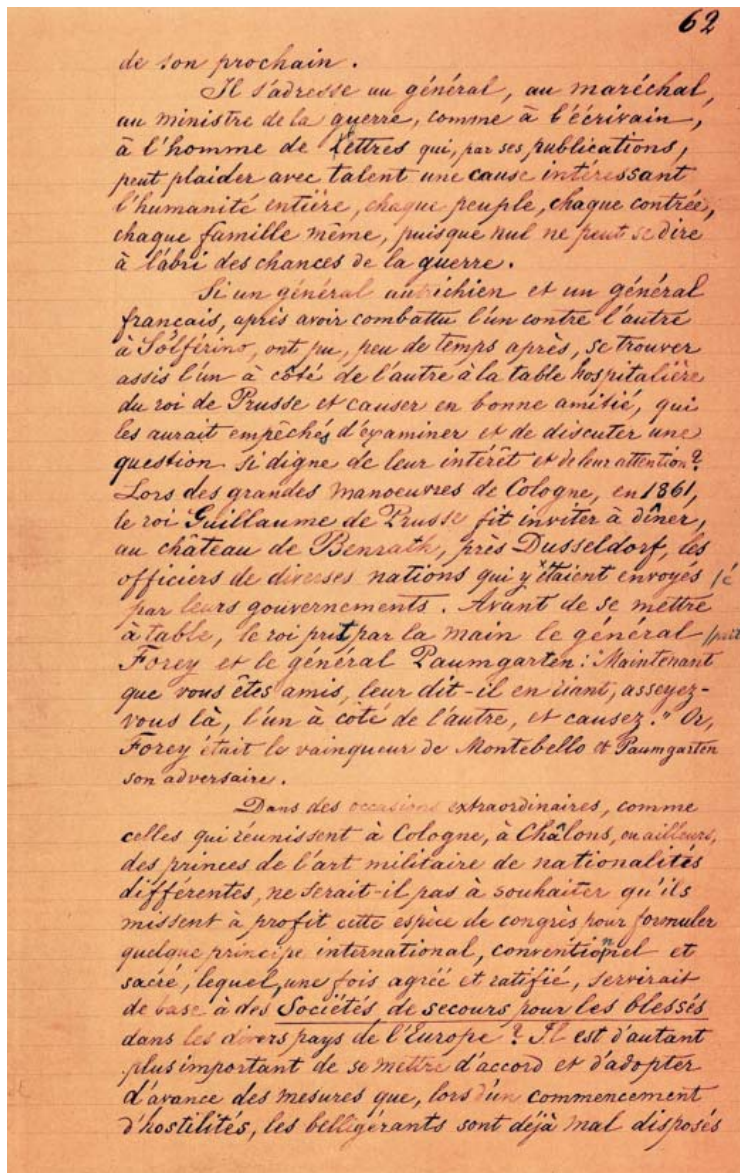 62
de son prochain.
Il s'adresse au général, au maréchal,
au ministre de la guerre, comme à l'écrivain,
à l'homme de Lettres qui, par ses publications,
peut plaider avec talent une cause intéressant
l'humanité entière, chaque peuple, chaque contrée,
chaque famille même, puisque nul ne peut se dire
à l'abri des chances de la guerre.
Si un général autrichien et un général
français, après avoir combattu l'un contre l'autre
à Solférino, ont pu, peu de temps après, se trouver
assis l'un à côté de l'autre à la table hospitalière
du roi de Prusse et causer en bonne amitié, qui
les aurait empêchés d'examiner et de discuter une
question si digne de leur intérêt et de leur attention?
Lors des grandes manoeuvres de Cologne, en 1861,
le roi Guillaume de Prusse fit inviter à dîner,
au château de Benrath, près Dusseldorf, les
officiers de diverses nations qui y étaient envoyés /é
par leurs gouvernements. Avant de se mettre
à table, le roi prit par la main le général
Forey et le général Paumgarten: "Maintenant
que vous êtes amis, leur dit-il en riant, asseyez-
vous là, l'un à côté de l'autre, et causez." Or,
Forey était le vainqueur de Montebello et Paumgarten
son adversaire.
Dans des occasions extraordinaires, comme
celles qui réunissent à Cologne, à Châlons, ou ailleurs,
des princes de l'art militaire de nationalités
différentes, ne serait-il pas à souhaiter qu'ils
missent à profit cette espèce de congrès pour formuler
quelque principe international, conventionnel et
sacré, lequel, une fois agréé et ratifié, servirait
de base à des Sociétés de secours pour les blessés
dans les divers pays de l'Europe? Il est d'autant
plus important de se mettre d'accord et d'adopter
d'avance des mesures que, lors d'un commencement
d'hostilités, les belligérants sont déjà mal disposés